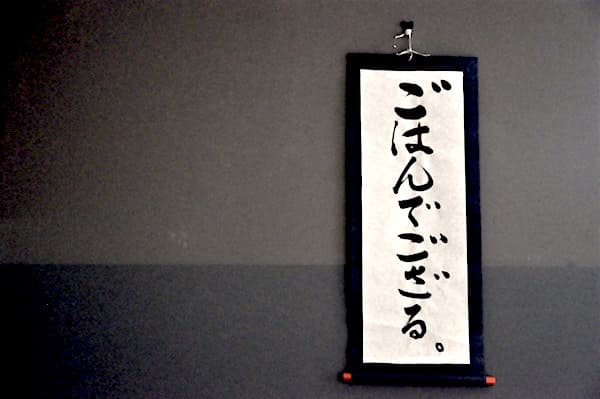 ごはんでござる。